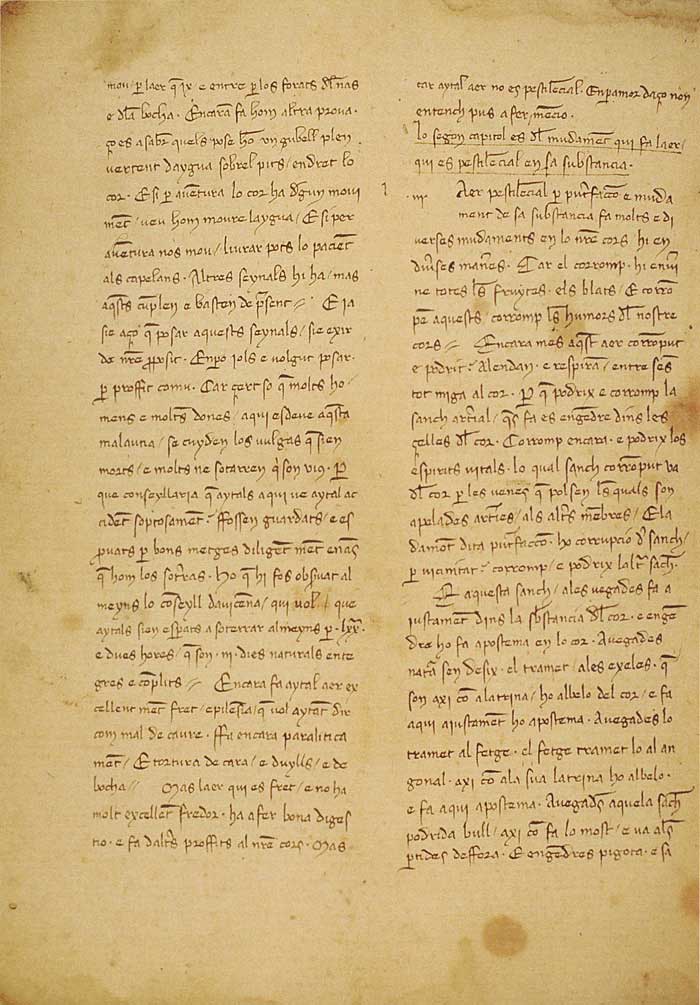 mou / p̱ laer q̄ ix / e entre p̱ los forats dl̄ nas
e dl̄a bocha . Encara fa hom altra prova .
ço es a sabr̄ quels pose hō vn gubell plen
vertent daygua sobrel pits / endret lo
cor . E si p̱ auētura lo cor ha dḡun moui
mēt / veu hom moure laygua / E si per
auētura nos mou / liurar pots lo pacient
als capelans . Altres seynals hi ha / mas
aq̄sts cūplen e basten de p̄sent // E ia
sie aço q̄ posar aquests seynals / sie exir
de nr̄e p̱posit . Enpō iols e volgut posar .
p̱ proffit comu . Car cert so q̄ molts ho
mens e molts dones / aqui esdeve aq̄sta
malautia / se cuyden los vulgas q̄ sien
morts / e molts ne soterren q̄ son vius . P̱
que conseyllaria q̄ aytals aqui ve aytal ac
cidēt soptosament / ffossen guardats / e es
p̱uats p̱ bons metges diligēt mēt enās
q̄ hom los sotr̄as . Ho q̄ hi fos obs̄uat al
meyns lo conseyll dauicēna / qui vol / que
aytals sien esp̱ats a soterrar almeyns p̱ . lxx .
e dues hores / q̄ son . iii . dies naturals ente
gres e cōplits // Encara fa aytal aer ex
cellent mēt fret / epilēsia / q̄ vol aytāt dir
com mal de caure . Ffa encara paralitica
mēt / E tortura de cara / e duylls / e de
bocha // Mas laer qui es fret / e no ha
molt excellēt fredor . ha a fer bona diges
tio . e fa dalt̄s proffits al nr̄e cors . Mas
car aytal aer no es pestilēcial . En p̱ amor daço non
entench pus a fer mēcio .
Lo segon capitol es dl̄ mudamēt qui fa laer /
qui es pestilēcial en sa substancia .
iii . Aer pestilēcial p̱ put̄factō e muda
ment de sa substancia fa molts e di
verses mudaments en lo nr̄e cors hi en
diu̅ses maneres . Car el corromp . hi enui
ne totes les fruytes . els blats / E corrō
pe aquests / corromp ls̄ humors dl̄ nostre
cors // Encara mes aq̄st aer corrōput
e podrit / Alendan . e respirā / entre sēs
tot miga al cor . P̱ q̄ podrix e corromp la
sanch art̄ial / q̄s fa es engēdre dins les
celles dl̄ cor . Corromp encara . e podrix los
espirits vitals . lo qual sanch corrōput va
dl̄ cor p̱ les venes q̄ polsen ls̄ quals son
apelades art̄ies / als alt̄s mēbres / E la
damōt dita put̄factō . ho corrupcio dl̄ sanch /
p̱ vicinitat / corromp / e podrix lalt̄ sāch .
E aquesta sanch / ales vegades fa a
iustament dins la sb̄stancia dl̄ cor . e engē
dre ho fa apostema en lo cor . Avegades
nat̄a sen desix . el tramet / ales exeles . q̄
son axi cō a latrina / ho albelo del cor / e fa
aqui aiustamēt ho apostema . Avegades lo
tramet al fetge . el fetge tramet lo al an
gonal . axi cō a la sua latrina ho albelo .
e fa aqui apostema . Avegades aquela sāch
podrida bull / axi cō fa lo most / e va als̄
p̱tides deffora . E engēdres pigota . e sa